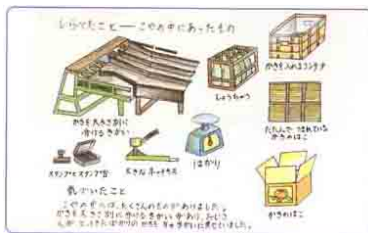 しらべたこと――こやの中にあったもの
かきを大きさ別に
分けるきかい
しょうちゅう
かきを入れるコンテナ
たたんで つまれている
かきのはこ
スタンプとスタンプ台
大きな ホッチキス
はかり
かきのはこ
気づいたこと
こやの中には、たくさんのものがありました。
かきを大きさ別に分けるきかいがあり、おじさ
んが、とってきたばかりのかきを、きかいにのせていました。